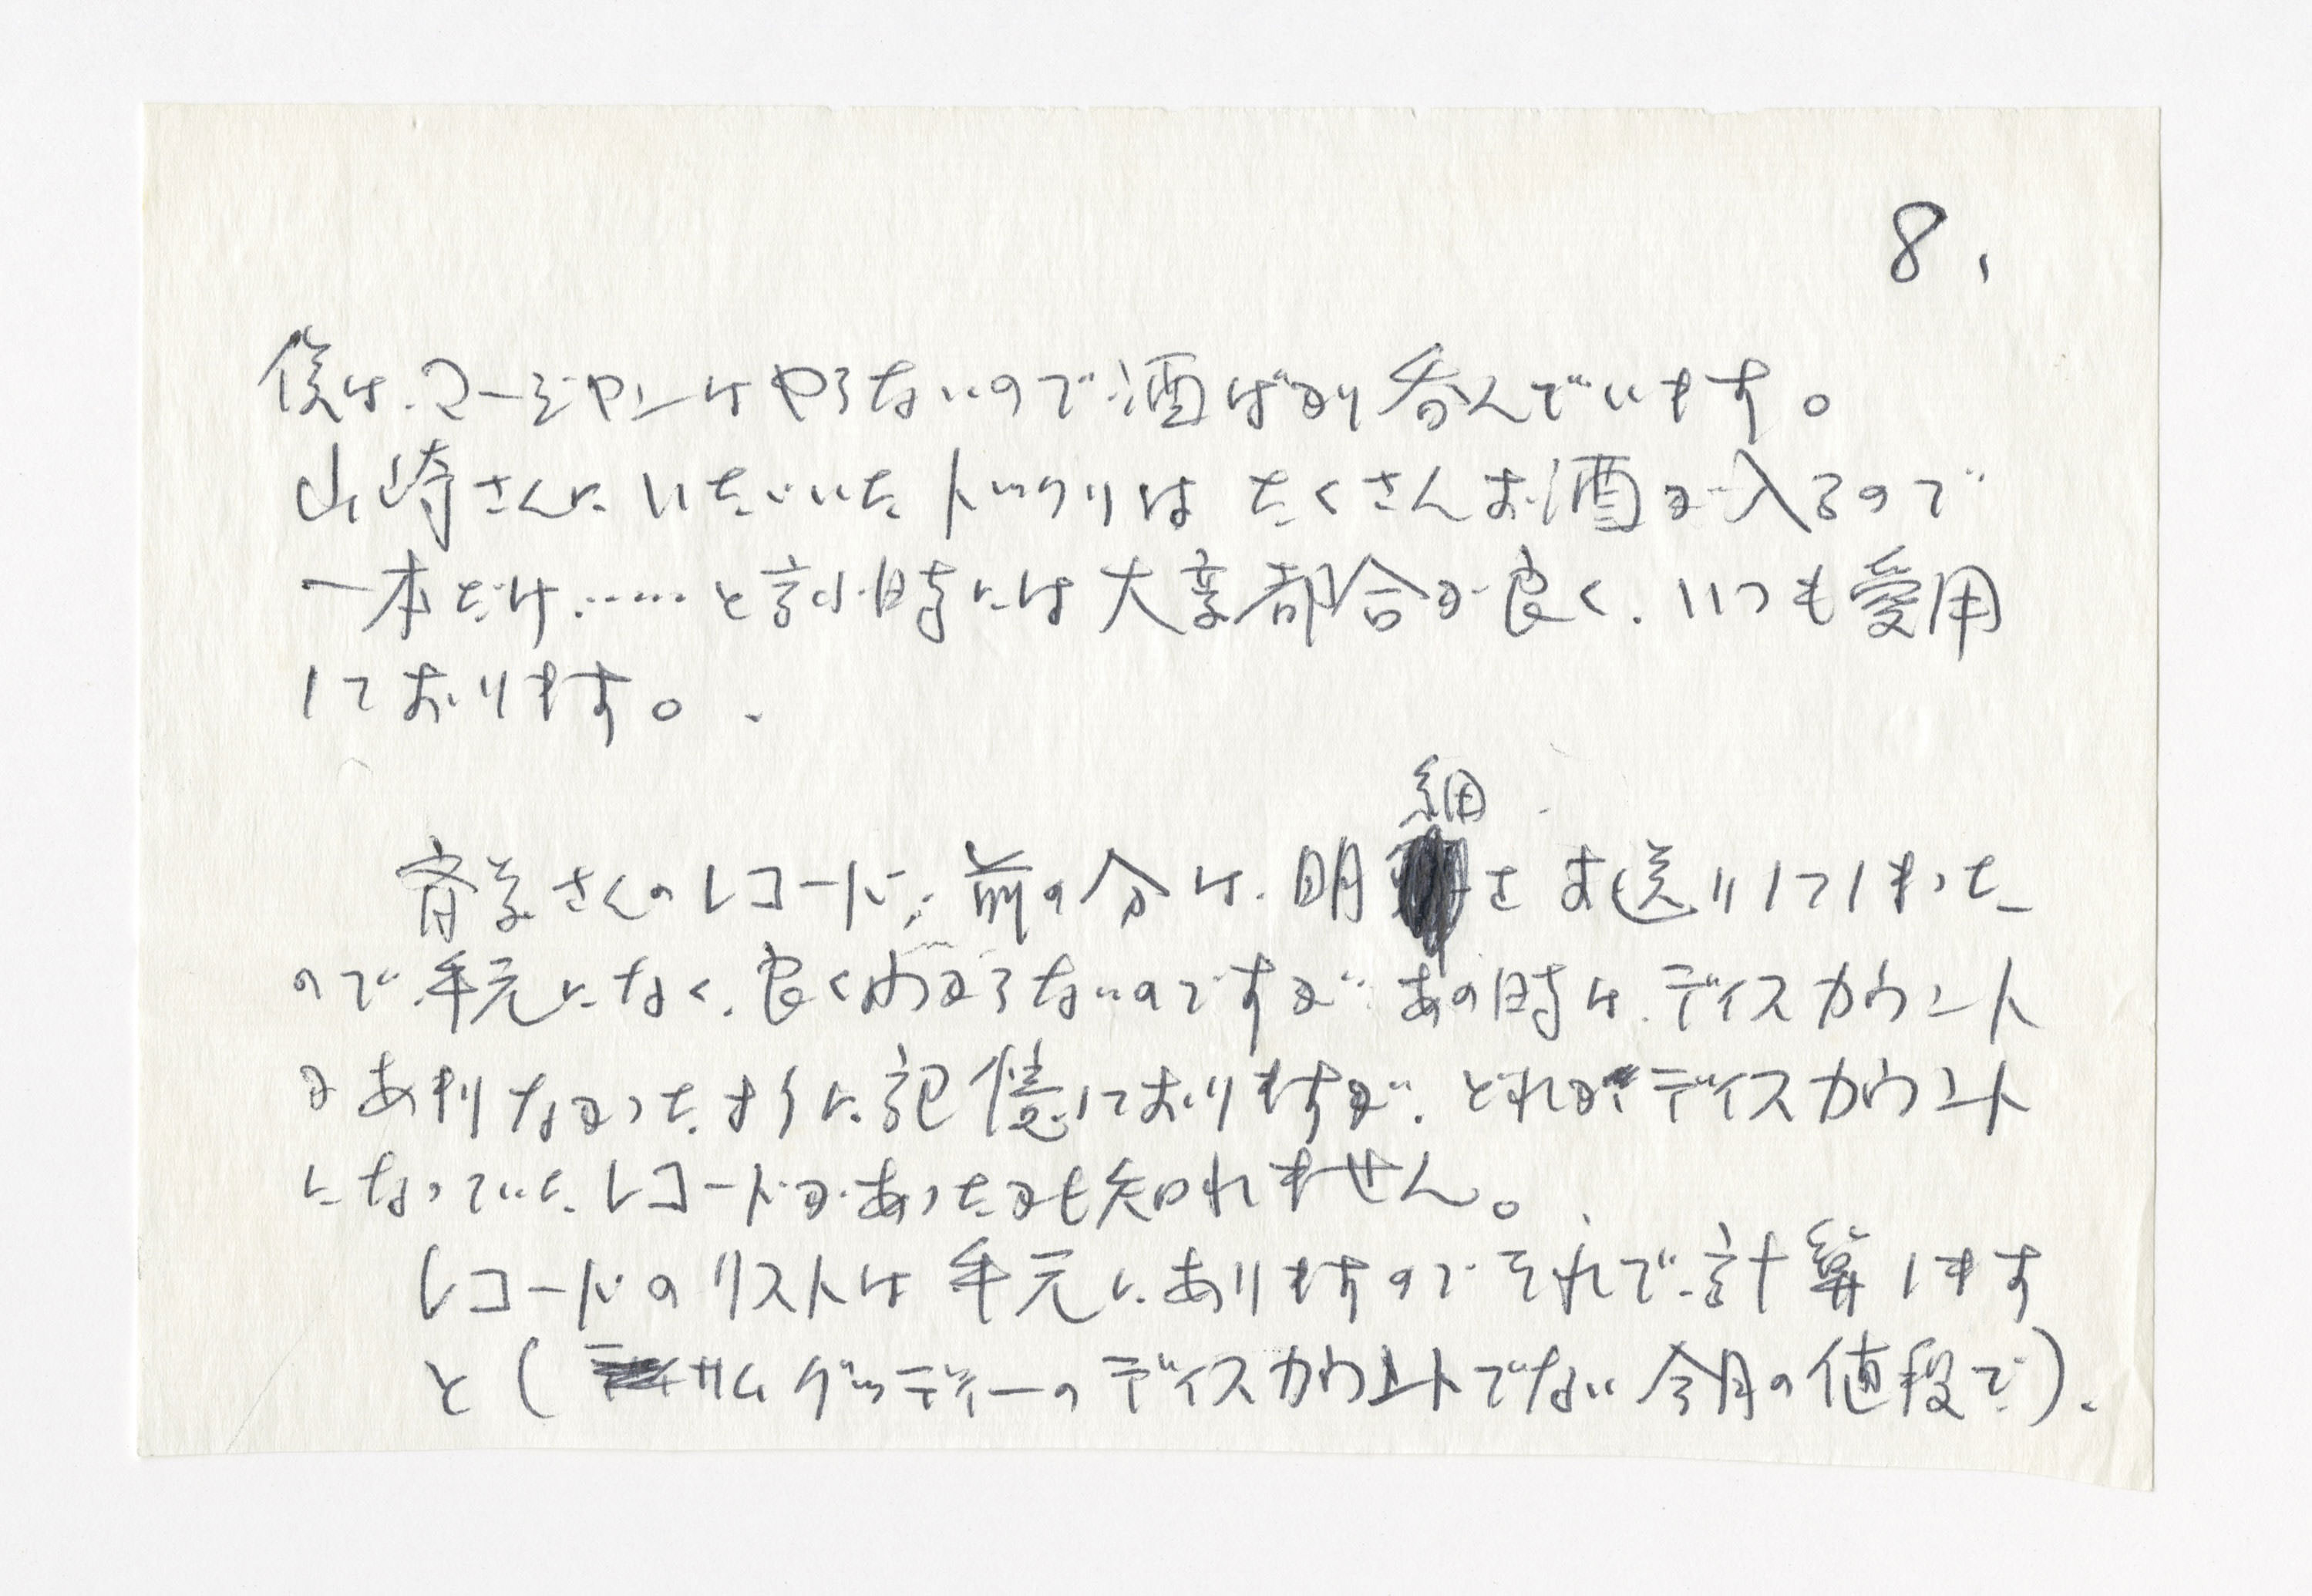 8,
僕は、マージャンはやらないので酒ばかり呑んでいます。
山崎さんにいただいたトックリはたくさんお酒が入るので
一本だけ……と言う時には大変都合が良く、いつも愛用
しております。
細
斉藤さんのレコード、前の分は、明をお送りしてしまった
ので手元になく、良くわからないのですが、あの時は、ディスカウント
があまりなかったように記憶しておりますが、どれかディスカウント
になっていたレコードがあったかも知れません。
レコードのリストは手元にありますのでそれで計算します
と(サムグッディーのディスカウントでない今月の値段で)、